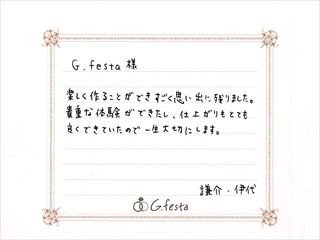 G.festa 様
楽しく作ることができすごく思い出に残りました。
貴重な体験ができたし、仕上がりもとても
良くできていたので一生大切にします。
謙介・伊代
G.festa